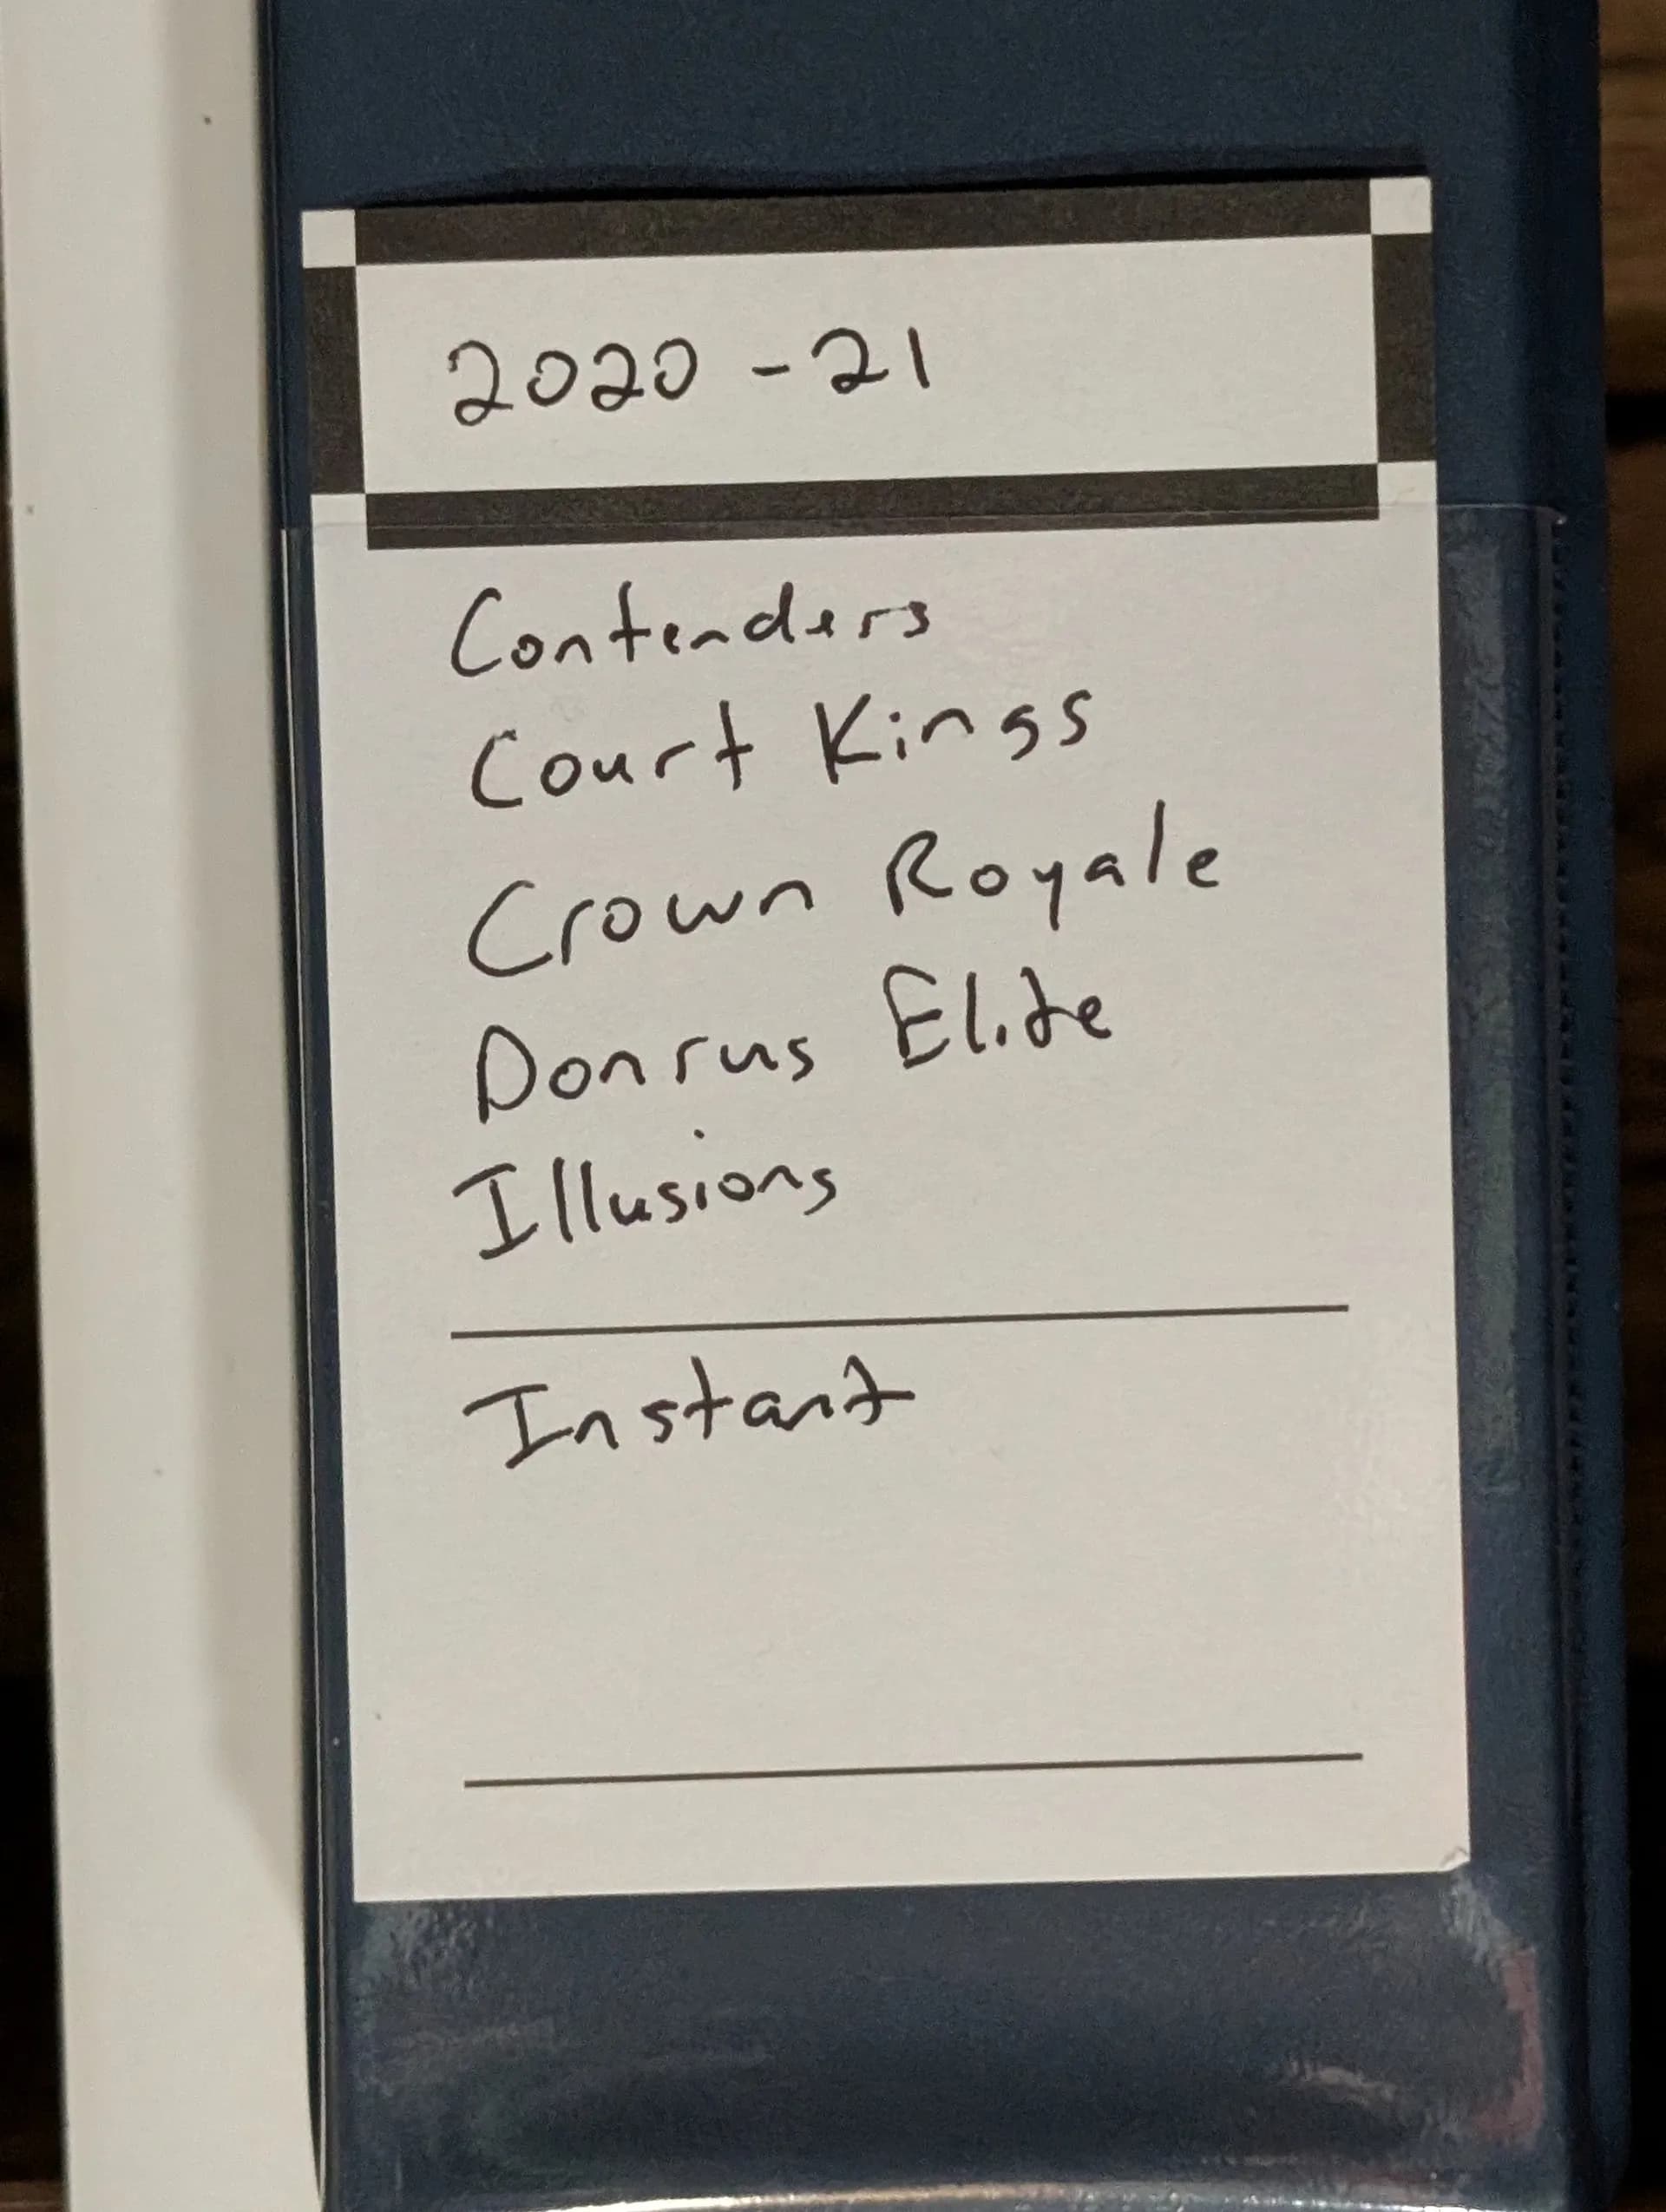 2020-21
Contenders
Court Kings
Crown Royale
Donrus Elite
Illusions
Instant